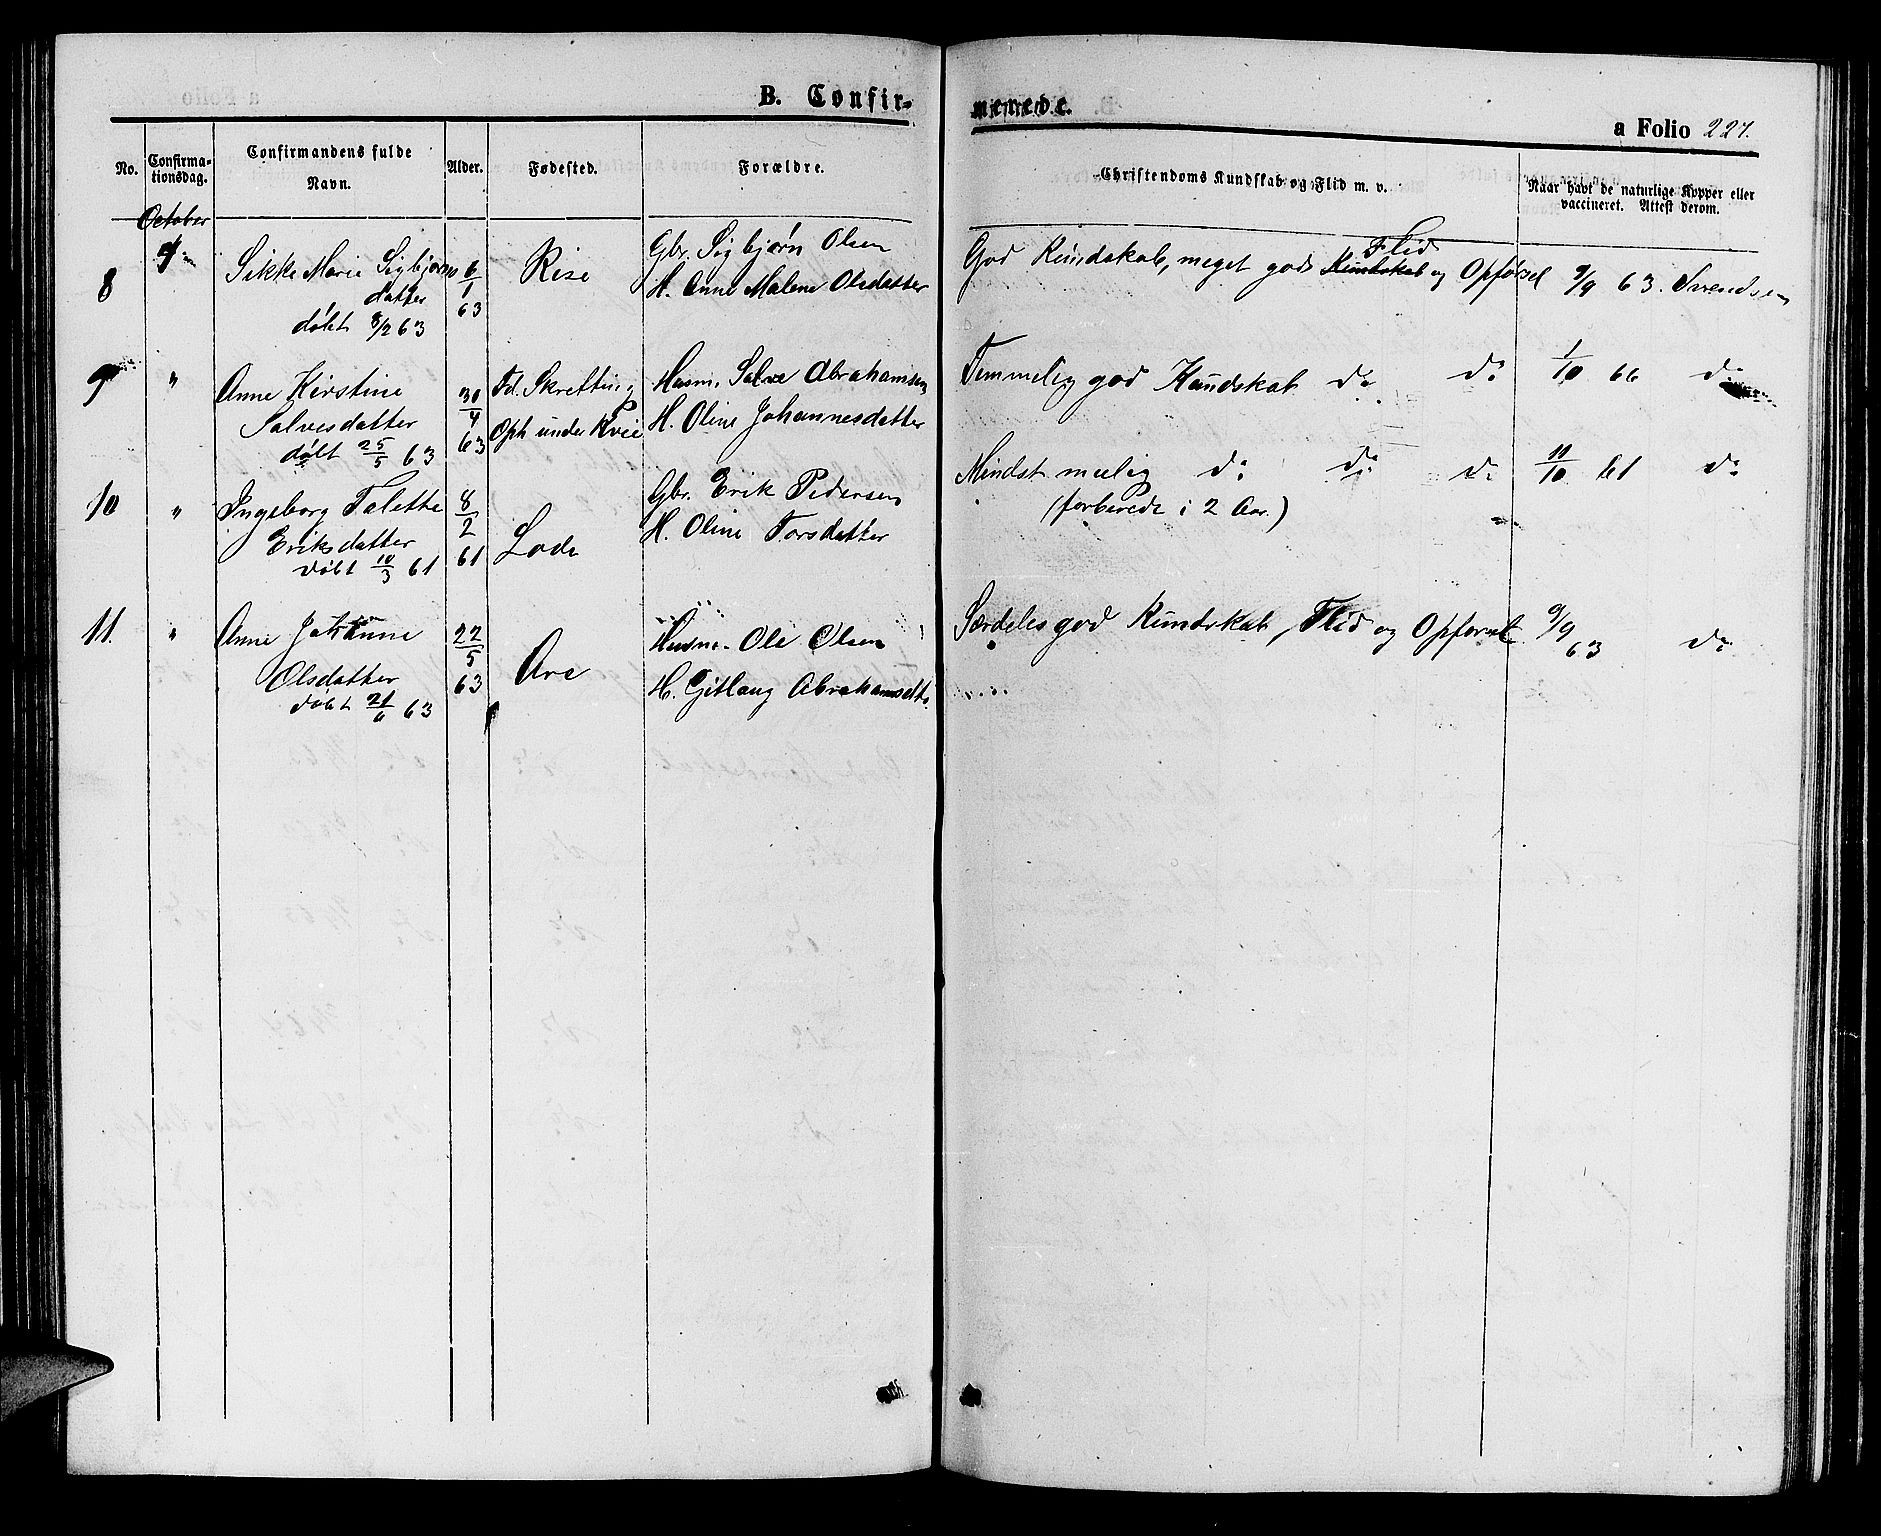 B. Confir-
menede.
a Folio 227.
No.
Confirma-
tionsdag.
Confirmandens fulde
Navn.
Alder.
Fødested.
Forældre.
Christendoms Kundskab og Flid m. v.
Naar havt de naturlige Kopper eller
vaccineret. Attest derom.
October
8 4 Sikke Marie Sigbjørns
datter
døbt 8/2 63
6/1 63
Rise
Gbr. Sigbjørn Olsen
H. Anne Malene Olsdatter
Flid
God Kundskab, meget god Kundskab og Opførsel 9/9 63. Svendsen
9 " Anne Kirstine
Salvesdatter
døbt 25/5 63
30/4 63
Fd. Skretting
Oph under Kvie
Husm. Salve Abrahamsen
H. Oline Johannesdatter
Temmelig god Kundskab do do 1/10 66 do
10 " Ingeborg Talette
Eriksdatter
døbt 10/3 61
8/2 61
Lode
Gbr. Erik Pedersen
H. Oline Torsdatter
Mindst mulig do do do 11/10 61 do
(forberedt i 2 Aar.)
11. " Anne Johanne
Olsdatter
døbt 21/6 63
22/5 63
Are
Husm. Ole Olsen
H. Gitlaug Abrahamsdtr.
Særdeles god Kundskab, Flid og Opførsel 9/9 63 do